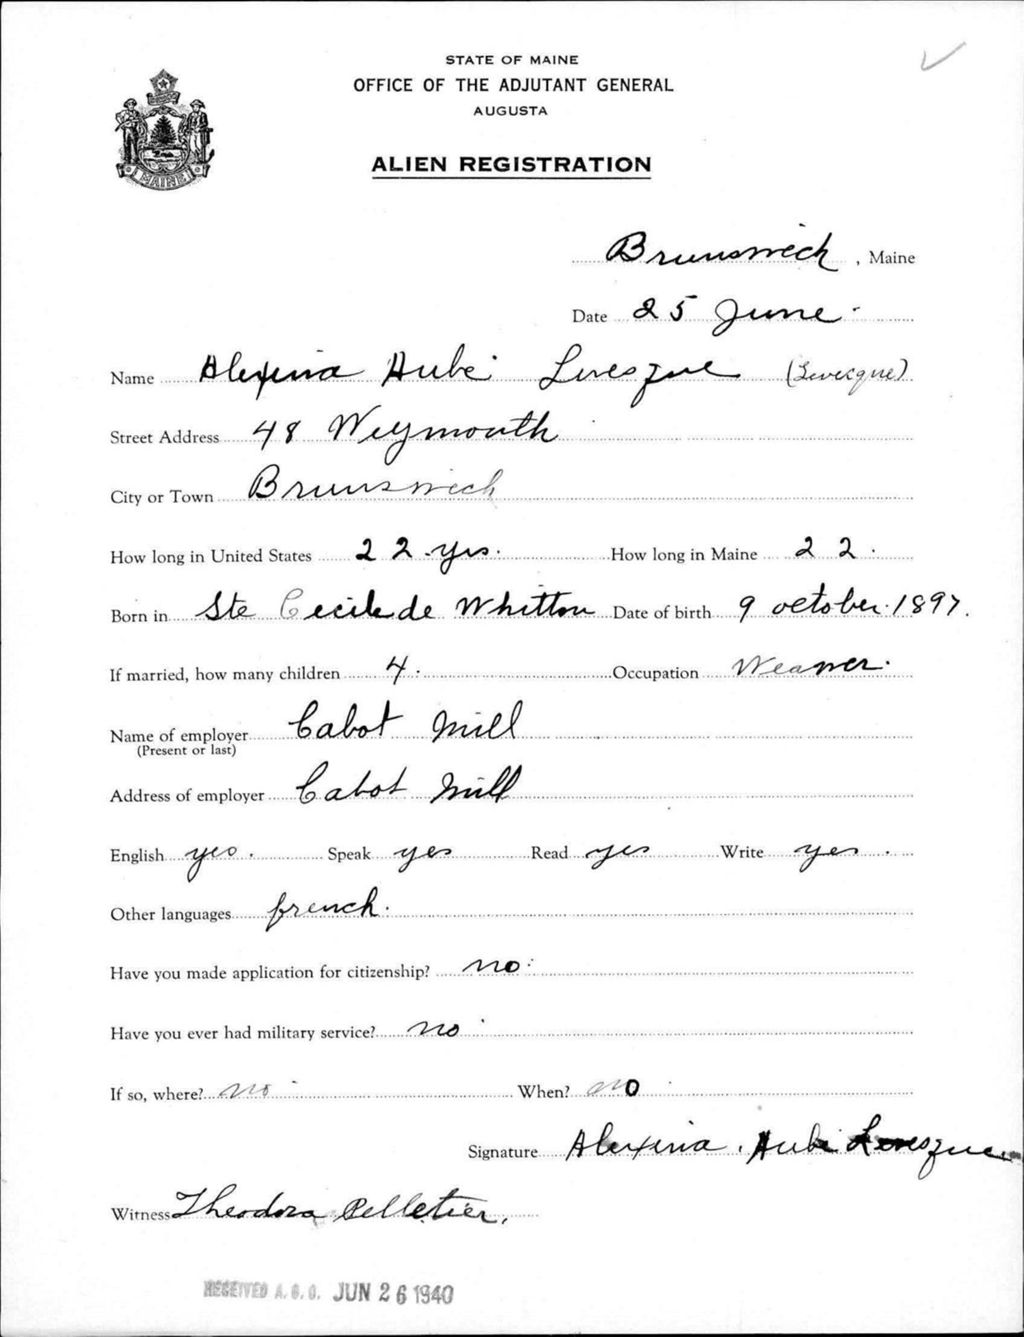 STATE OF MAINE
OFFICE OF THE ADJUTANT GENERAL
AUGUSTA
ALIEN REGISTRATION
MAINE
Brunswick, Maine
Date 25 June.
Name Alexina Aube Levesque (Levecque)
Street Address 48 Weymouth
City or Town Brunswick
How long in United States 22 yrs. How long in Maine 22.
Born in Ste Cecile de Whitton Date of birth 9 october 1897.
If married, how many children 4. Occupation Weaver.
Name of employer Cabot Mill
(Present or last)
Address of employer Cabot Mill
English yes. Speak yes Read yes Write yes.
Other languages french.
Have you made application for citizenship? no.
Have you ever had military service? no
If so, where? no When? no
Signature Alexina Aube Levesque
Witness Theodora Pelletier.
RECEIVED A.G.O. JUN 26 1940